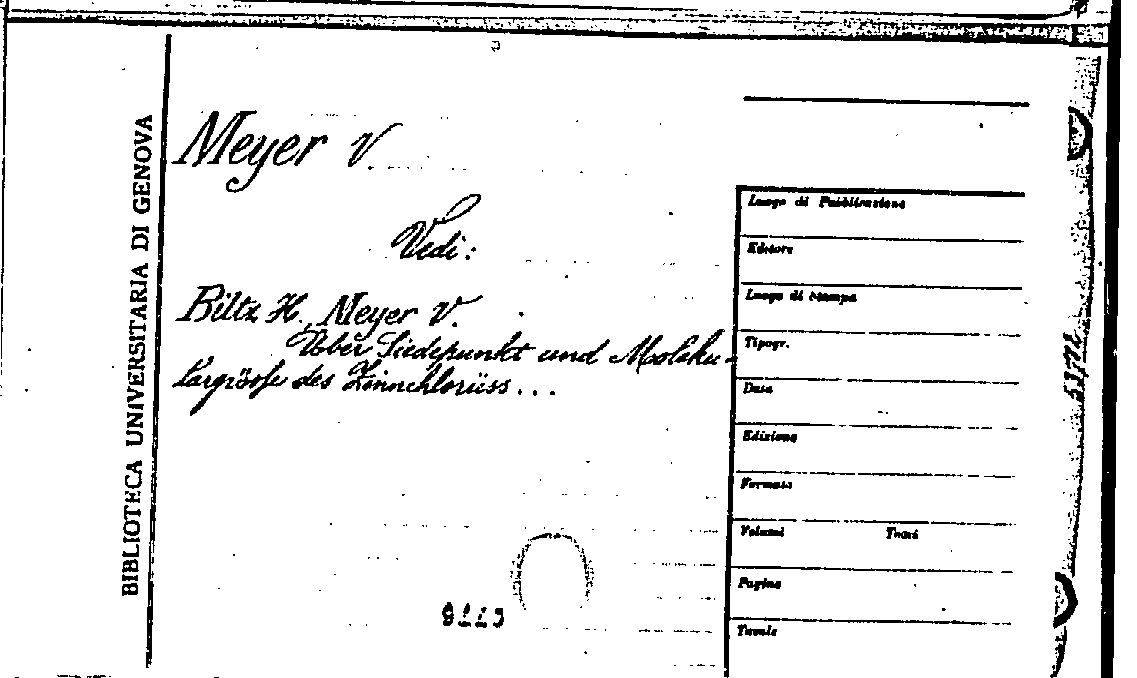 BIBLIOTECA UNIVERSITARIA DI GENOVA
Meyer V
Vedi:
Biltz H. Meyer V.
Über Siedepunkt und Moleku-
largrösse des Zinnchlorüss...
Luogo di Pubblicazione
Editore
Luogo di stampa
Tipogr.
Data
Edizione
Formato
Volumi Tomi
Pagine
Tavole